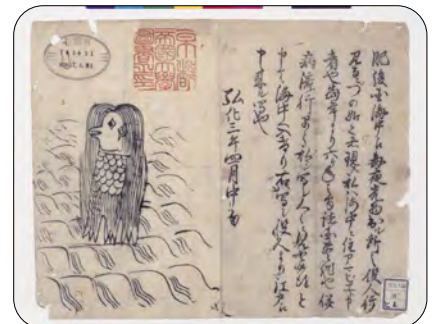 肥後国海中え毎夜光物出ル所之役人行
見るニづの如く者現ス私ハ海中ニ住アマビヱト申
者也当年より六ヶ年之間諸国豊作也併
病流行早々私写シ人々ニ見せ候得と
申て海中へ入けり右写シ役人より江戸え
申来ル写也
弘化三年四月中旬
京都
帝國大學
圖書之印